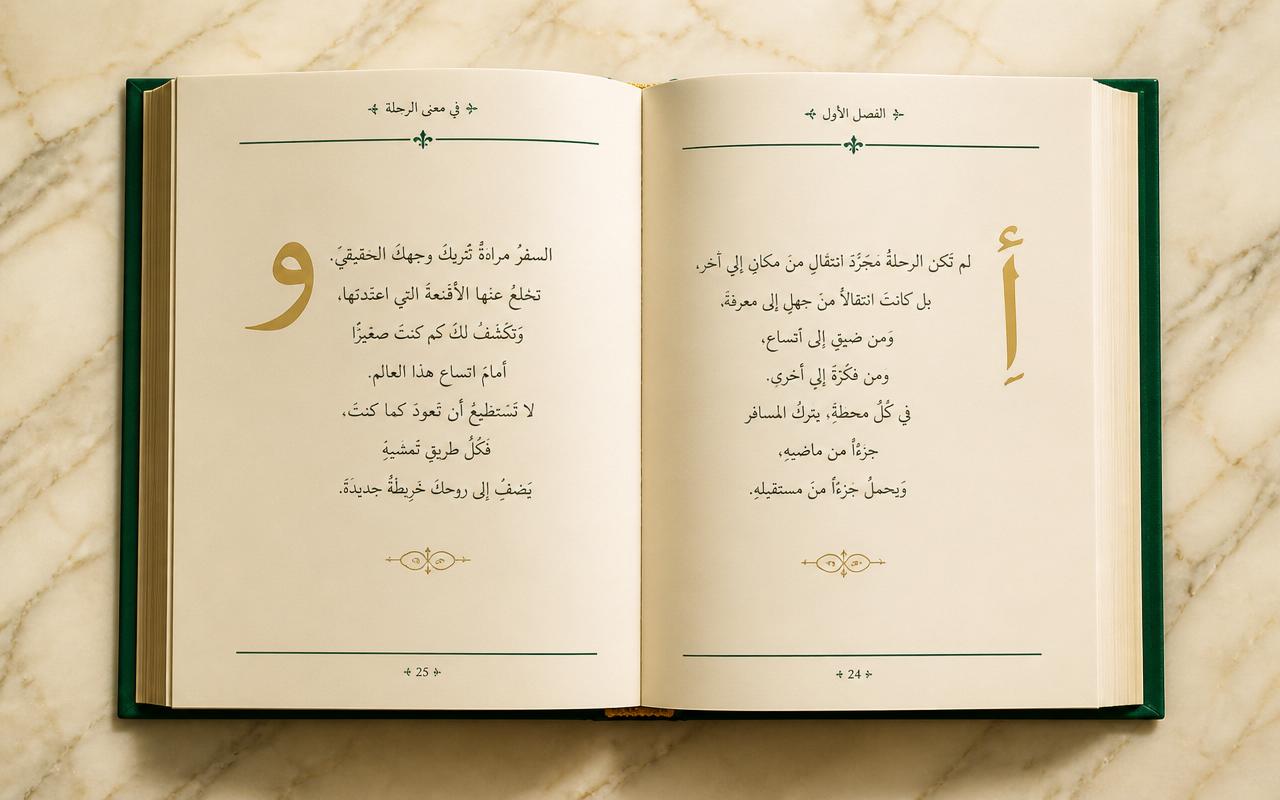 الفصل الأول
أِ
لم تَكن الرحلةُ مَجَرَّدَ انتقَالِ منَ مكانِ إلي آخر،
بل كانتَ انتقالاً منَ جهلِ إلى معرفةَ،
وَمن ضيقِ إلى اَتساع،
ومن فكَرَةَ إلي أخرىِ.
في كَُلُ محطةَِ، يتركُ المسافر
جزءُاً من ماضيهِ،
وَيحملُ جَزءُاً منَ مستقيلهِ.
24
في معنى الرحلة
و
السفرُ مراةةٌ تُتريكَ وجهكَ الحَقيقيَ.
تخلعُ عنْها الأقَنعةَ التي اعتَدتها،
وَتكَشَفُ لكَ كم كنتَ صغَيرًا
أمامَ اتساع هذا العالم.
لا تَسَتظيعُ أن تَعودَ كما كنتَ،
فَكُلُ طريقِ تَمشيهَِ
يَضفُِ إلى روحكَ خَرِيطةُ جديدَةَ.
25